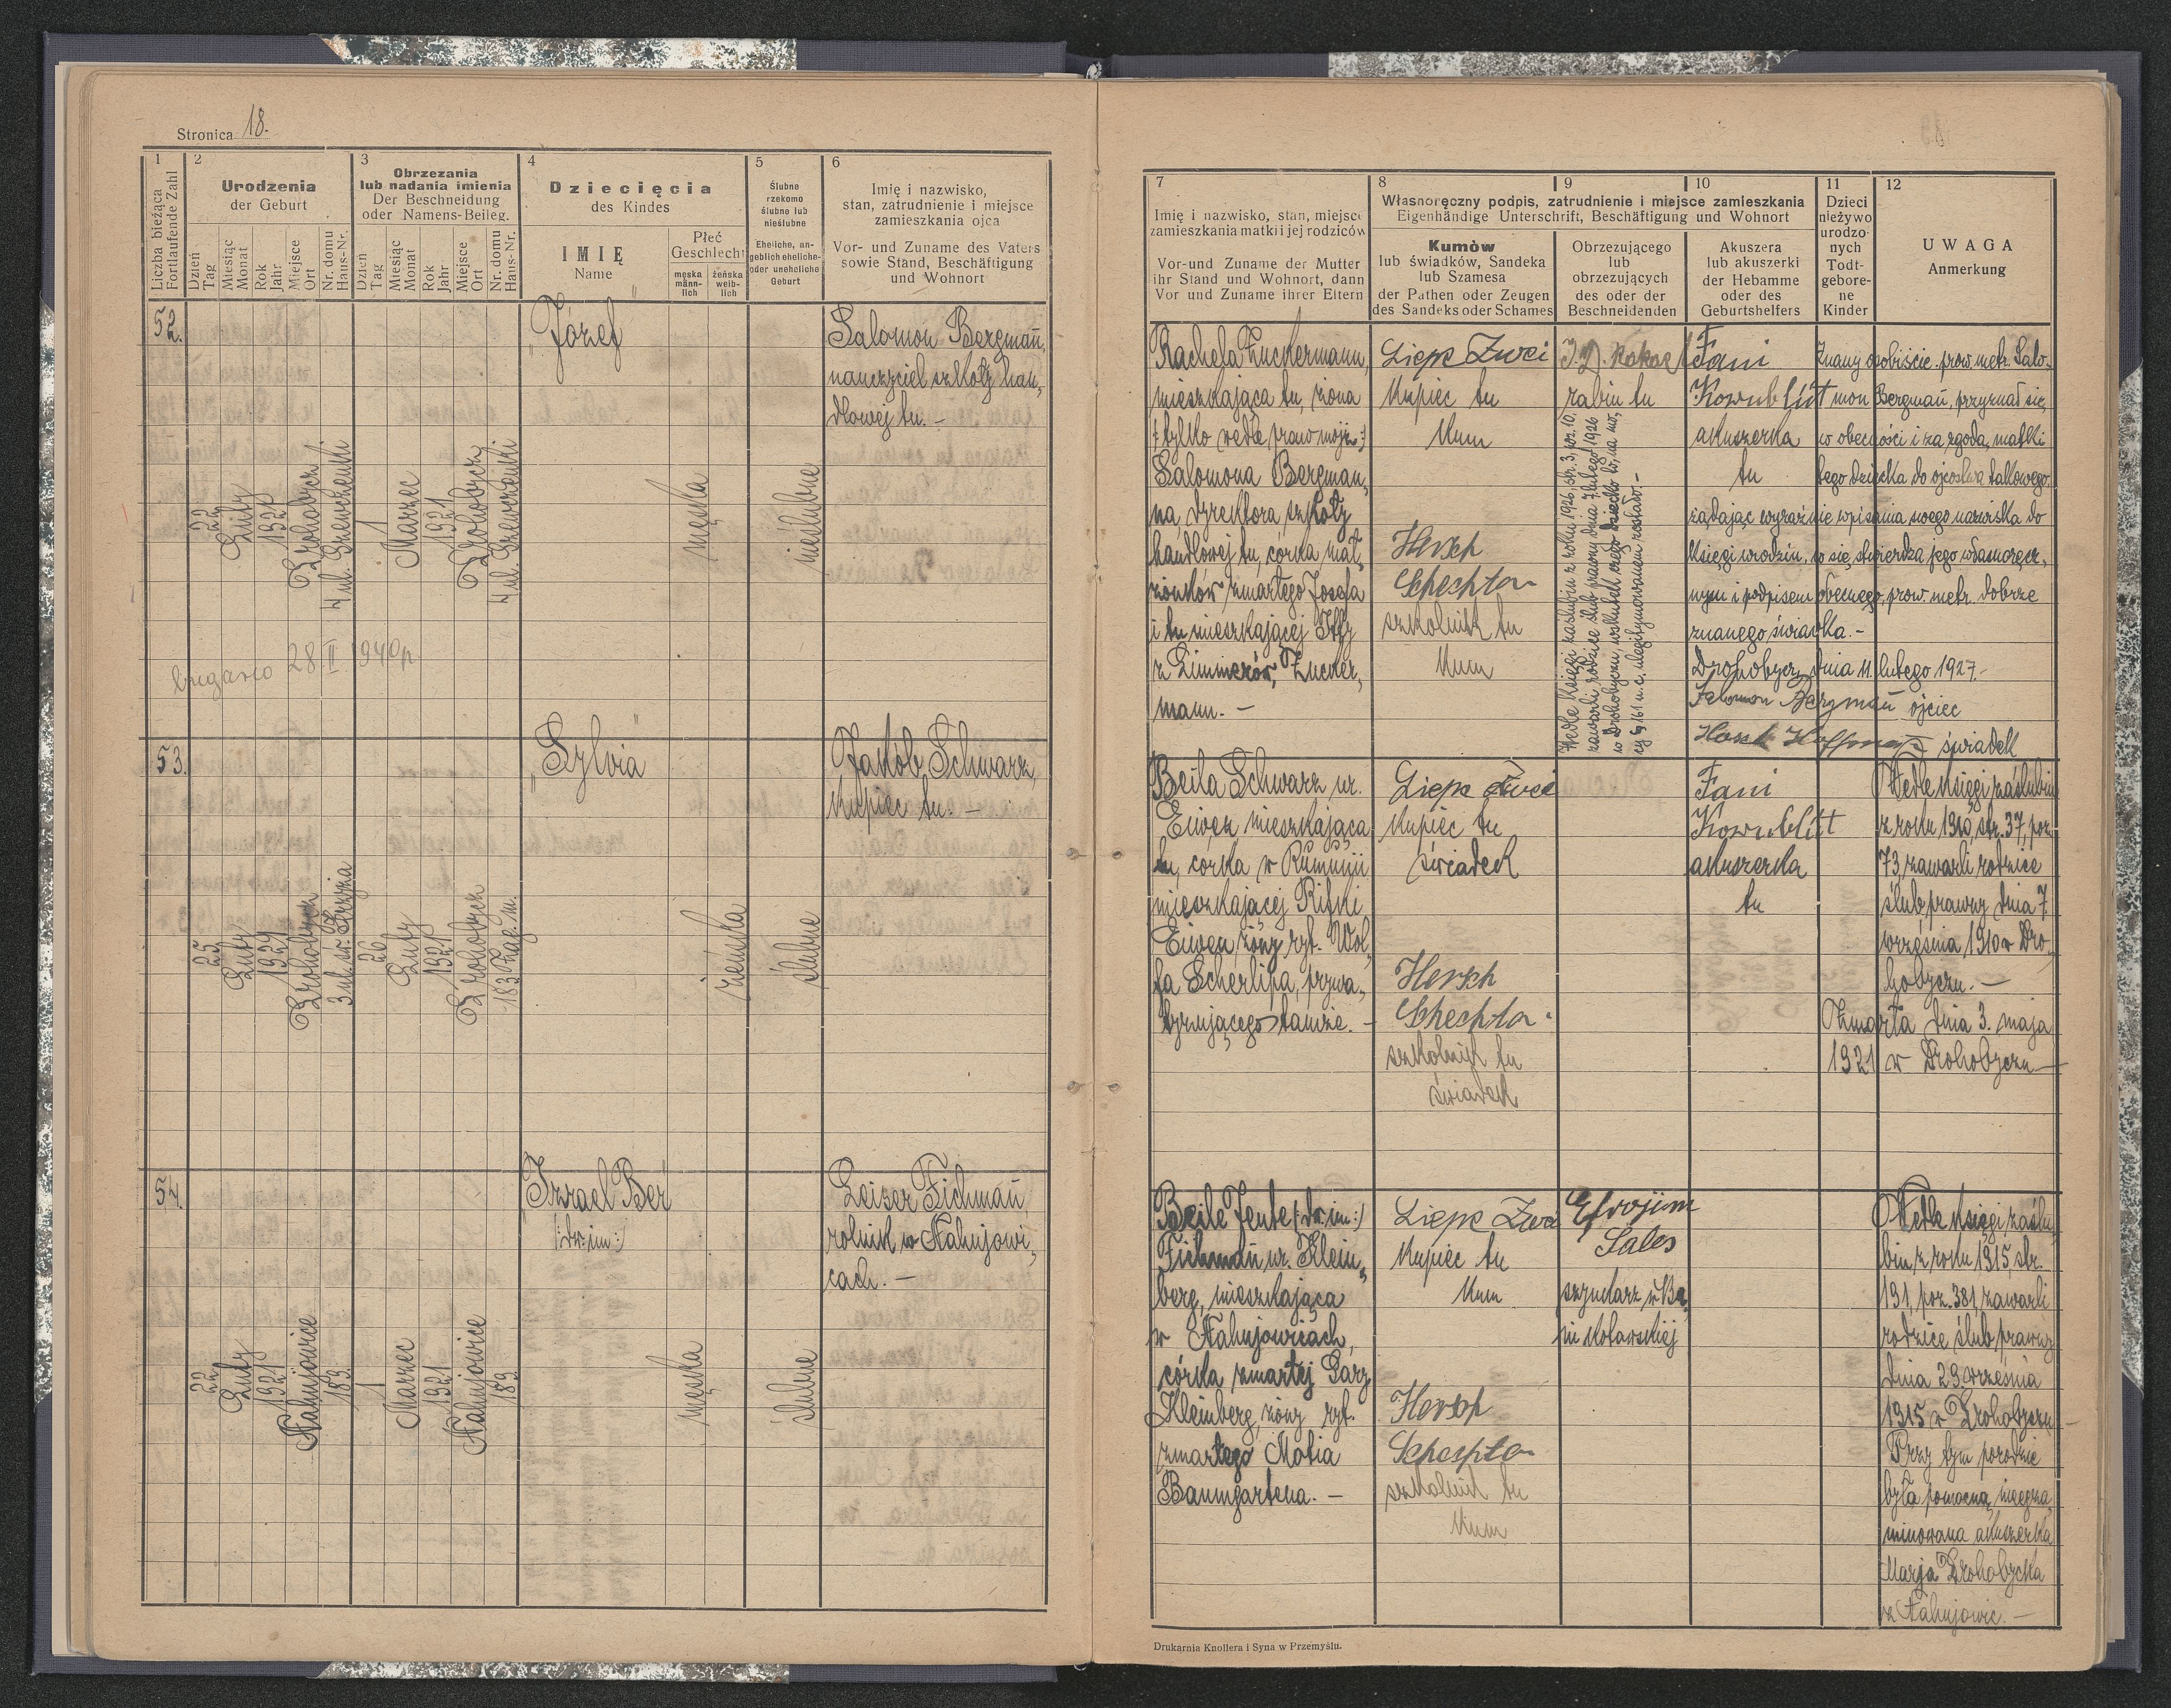 Stronica 18.
1
Liczba bieżąca
Fortlaufende Zahl
2
Urodzenia
der Geburt
Dzień
Tag
Miesiąc
Monat
Rok
Jahr
Miejsce
Ort
Nr. domu
Haus-Nr.
3
Obrzezania
lub nadania imienia
Der Beschneidung
oder Namens-Beileg.
Dzień
Tag
Miesiąc
Monat
Rok
Jahr
Miejsce
Ort
Nr. domu
Haus-Nr.
4
Dziecięcia
des Kindes
IMIĘ
Name
Płeć
Geschlecht
męska
männ-
lich
żeńska
weib-
lich
5
Ślubne
rzekomo
ślubne lub
nieślubne
Eheliche, an-
geblich eheliche-
oder uneheliche
Geburt
6
Imię i nazwisko,
stan, zatrudnienie i miejsce
zamieszkania ojca
Vor- und Zuname des Vaters
sowie Stand, Beschäftigung
und Wohnort
7
Imię i nazwisko, stan, miejsce
zamieszkania matki i jej rodziców
Vor-und Zuname der Mutter
ihr Stand und Wohnort, dann
Vor und Zuname ihrer Eltern
8
Własnoręczny podpis, zatrudnienie i miejsce zamieszkania
Eigenhändige Unterschrift, Beschäftigung und Wohnort
Kumów
lub świadków, Sandeka
lub Szamesa
der Pathen oder Zeugen
des Sandeks oder Schames
9
Obrzezującego
lub
obrzezujących
des oder der
Beschneidenden
10
Akuszera
lub akuszerki
der Hebamme
oder des
Geburtshelfers
11
Dzieci
nieżywo
urodzo-
nych
Todt-
gebore-
ne
Kinder
12
UWAGA
Anmerkung
52.
22
Luty
1921
Drohobycz
4 ul. Szewczenki
1
Marzec
1921
Drohobycz
4 ul. Szewczenki
"Józef"
męska
nieślubne
Salomon Bergmañ,
nauczyciel szkoły han„
dlowej tu. –
28 II 1940 r
Rachela Zuckermann,
mieszkająca tu, żona
(:tylko wedle praw mojż:)
Salomona Bergman„
na dyrektora szkoły
handlowej tu, córka mał„
żonków zmarłego Josefa
i tu mieszkającej Itty
z Zimmerów, Zucker„
mann. –
Liepe Zwei
kupiec tu
kum
Hersch
Schechter
szkolnik tu
kum
rabin tu
Wedle księgi zaślubin z roku 1926, str. 3, poz. 10,
zawarli rodzice ślub prawny dnia 7 lutego 1926
w Drohobyczu, wskutek czego dziecko to, na mo„
cy § 161 u. c. ulegitymowanem zostało. –
Fani
Kornblüt
akuszerka
tu
Znany osobiście prow. metr. Salo„
mon Bergmañ, przyznał się,
w obecności i za zgodą matki
tego dziecka do ojcostwa takowego
żądając wyraźnie wpisania swego nazwiska do
księgi urodzin, co się stwierdza jego własnoręcz„
nym i podpisem obecnego, prow. metr. dobrze
znanego świadka. –
Drohobycz, dnia 11. lutego 1927. –
Salomon Bergmañ ojciec
świadek
53.
25
Luty
1921
Drohobycz
3 ul. św. Krzyża
26
Luty
1921
Drohobycz
183 Zag. m.
"Sylvia"
żeńska
ślubne
Jakób Schwarz,
kupiec tu. –
Beila Schwarz ur.
mieszkająca
tu, córka w Rumunji
mieszkającej Rifki
żony ryt. Wol„
fa Scherlipa, przyna„
tamże. –
Liepe Zwei
kupiec tu
świadek
Hersch
Schechter
szkolnik tu
świadek
Fani
Kornblüt
akuszerka
tu
Wedle księgi zaślubin
z roku 1910, str. 37, poz.
73, zawarli rodzice
ślub prawny dnia 7
września 1910 w Dro„
hobyczu. –
Zmarła dnia 3. maja
1921 w Drohobyczu –
54.
22
Luty
1921
Nahujowice
189.
1
Marzec
1921
Nahujowice
189.
Izrael Ber
(:dw. im:)
męska
ślubne
Leiser Fichmañ,
rolnik w Nahujowi„
cach. –
Beile Jente (:dw. im:)
Fichmañ ur. Klein„
berg, mieszkająca
w Nahujowicach,
córka zmarłej Sary
Kleinberg, żony ryt.
zmarłego Motia
Baumgartena. –
Liepe Zwei
kupiec tu
kum
Hersch
Schechter
szkolnik tu
kum
Efrojim
Sales
szynkarz w Ba„
ni kotowskiej
Wedle księgi zaślu„
bin z roku 1915, str.
191, poz. 381 zawarli
rodzice ślub prawny
dnia 29 września
1915 w Drohobyczu
Przy tym porodzie
była pomocną nieegza„
minowana akuszerka
Marja Drohobycka
z Nahujowic. –
Drukarnia Knollera i Syna w Przemyślu.